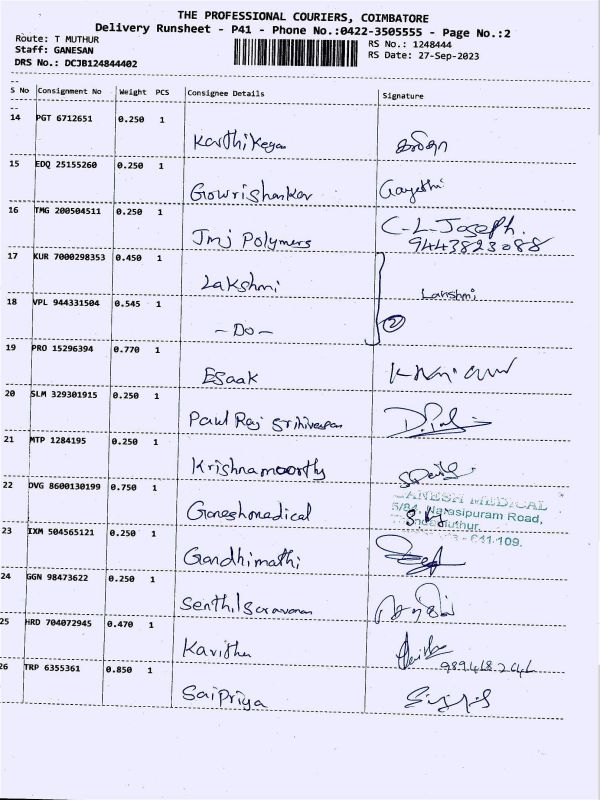 THE PROFESSIONAL COURIERS, COIMBATORE
Delivery Runsheet - P41 - Phone No.:0422-3505555 - Page No.:2
Route: T MUTHUR
RS No.: 1248444
Staff: GANESAN
RS Date: 27-Sep-2023
DRS No.: DCJB124844402
S No Consignment No Weight PCS Consignee Details Signature
14 PGT 6712651 0.250 1
Karthikeyan
15 EDQ 25155260 0.250 1
Gowrishankar Gayathri
16 TMG 200504511 0.250 1
Jmj Polymers C-L-Joseph.
9443823088
17 KUR 7000298353 0.450 1
Lakshmi Lakshmi
18 VPL 944331504 0.545 1
- Do - 2
19 PRO 15296394 0.770 1
Esaak
20 SLM 329301915 0.250 1
Paul Raj
21 MTP 1284195 0.250 1
Krishnamoorthy
22 DVG 8600130199 0.750 1
Ganeshmedical
GANESH MEDICAL
5/84, Narasipuram Road,
641 109.
23 IXM 504565121 0.250 1
Gandhimathi
24 GGN 98473622 0.250 1
Senthil Saravanan
25 HRD 704072945 0.470 1
Kavitha
26 TRP 6355361 0.850 1
SaiPriya